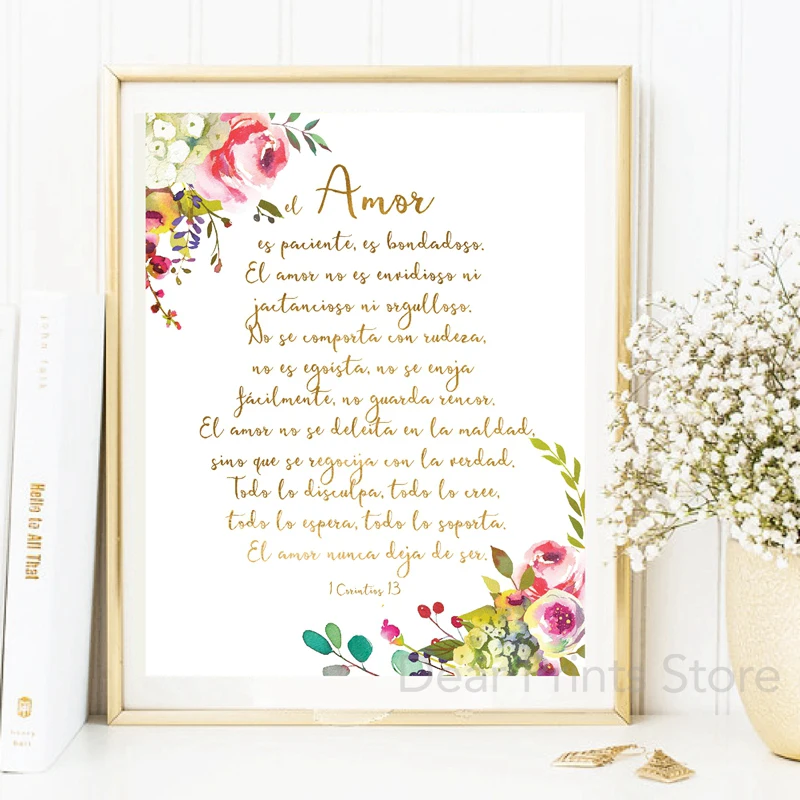 el Amor
es paciente, es bondadoso.
El amor no es envidioso ni
jactancioso ni orgulloso.
No se comporta con rudeza,
no es egoísta, no se enoja
fácilmente, no guarda rencor.
El amor no se deleita en la maldad,
sino que se regocija con la verdad.
Todo lo disculpa, todo lo cree,
todo lo espera, todo lo soporta.
El amor nunca deja de ser.
1 Corintios 13
Hello to All That
Dear Prints Store